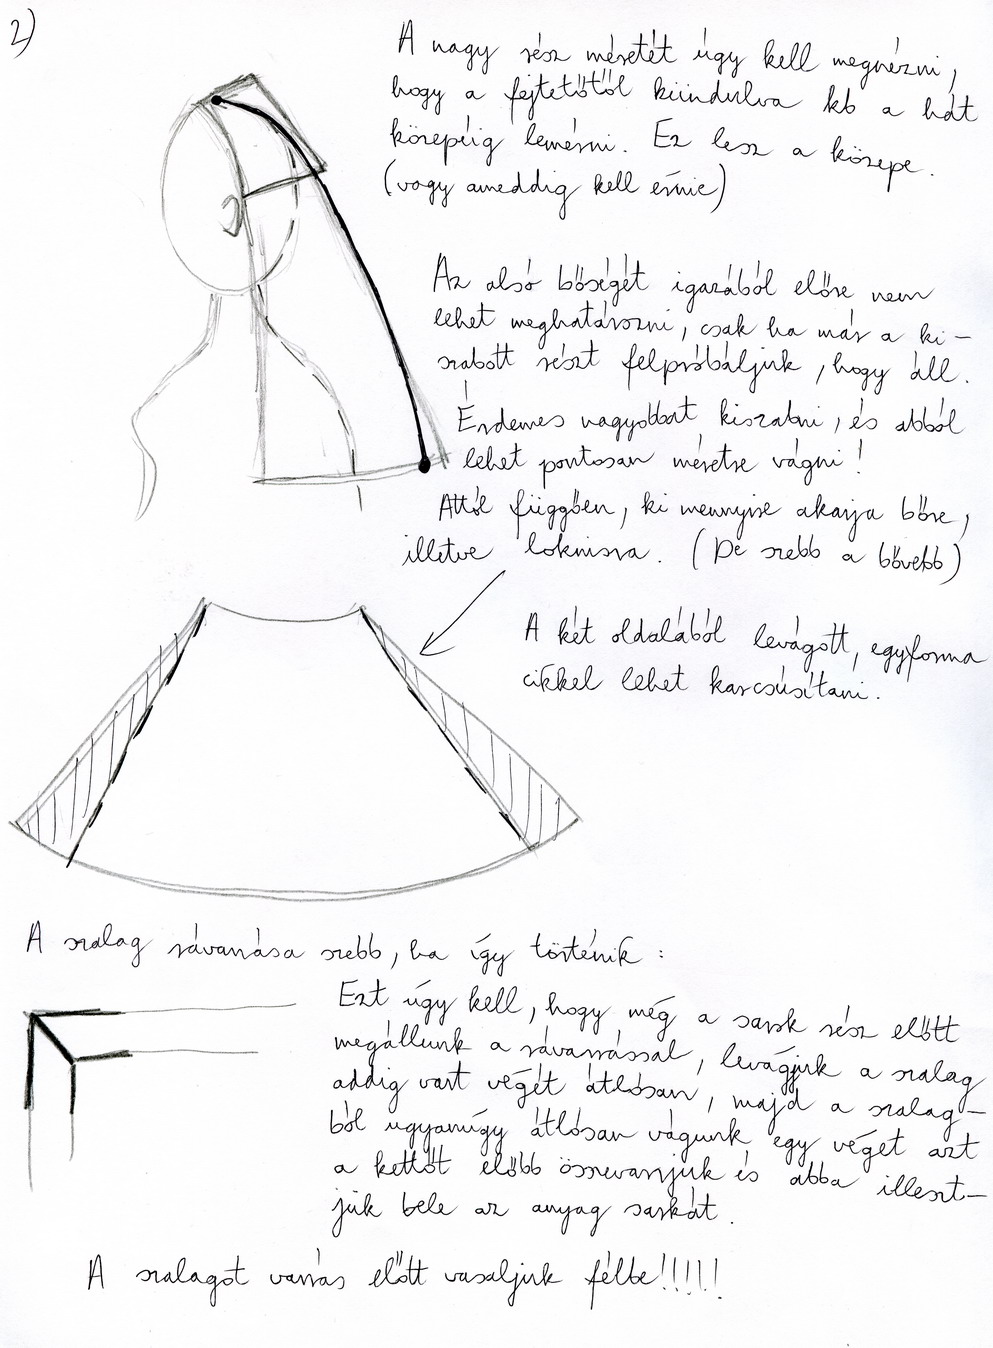 2)
A nagy rész méretét úgy kell megnézni,
hogy a fejtetőtől kiindulva kb a hát
közepéig lemérni. Ez lesz a közepe.
(vagy ameddig kell érnie)
Az alsó bőségét igazából előre nem
lehet meghatározni, csak ha már a ki-
szabott részt felpróbáljuk, hogy áll.
Érdemes nagyobbat kiszabni, és abból
lehet pontosan méretre vágni!
Attól függően, ki mennyire akarja bőre,
illetve loknisra. (De szebb a bővebb)
A két oldalából levágott, egyforma
cikkel lehet karcsúsítani.
A szalag rávarrása szebb, ha így történik:
Ezt úgy kell, hogy még a sarok rész előtt
megállunk a rávarrással, levágjuk a szalag
addig vart végét átlósan, majd a szalag-
ból ugyanúgy átlósan vágunk egy véget azt
a kettőt előbb összevarrjuk és abba illeszt-
jük bele az anyag sarkát.
A szalagot varrás előtt vasaljuk félbe!!!!!